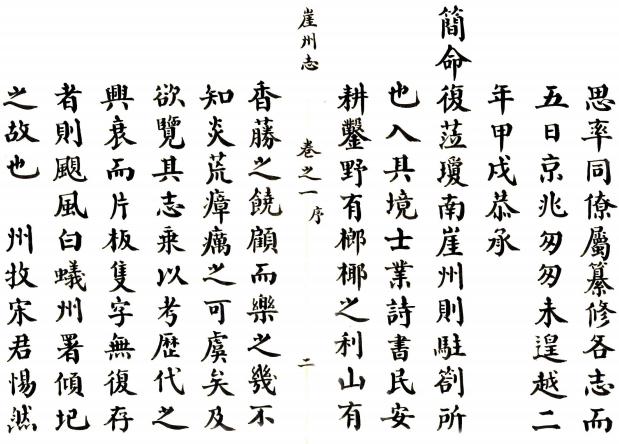 思率同僚屬纂修各志而
五日京兆匆匆未遑越二
年甲戌恭承
簡命復蒞瓊南崖州則駐劄所
也入其境士業詩書民安
耕鑿野有榔椰之利山有
崖州志 卷之一 序 二
香藤之饒顧而樂之幾不
知炎荒瘴癘之可虞矣及
欲覽其志乘以考歷代之
興衰而片板隻字無復存
者則颶風白蟻州署傾圮
之故也 州牧宋君惕然